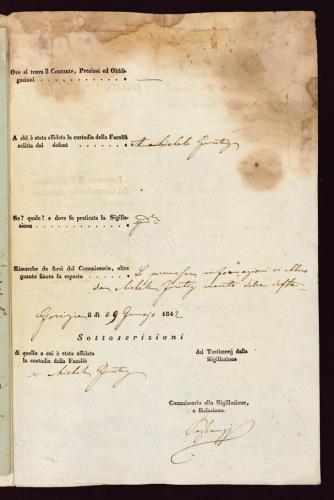 Ove si trova il Contante, Preziosi ed Obbli-
gazioni . . . . . . . . . . . . . —
A chi è stata affidata la custodia della Facoltà
relitta dai defonti . . . . . . . . A Michele
Se? quale? e dove fu praticata la Sigilla-
zione . . . . . . . . . . . . .
Rimarche da farsi dal Commissario, oltre
quanto finora fu esposto . . . . . . Le informazioni si ebbero
da Michele marito della defta
Gorizia li di 29 Gennajo 1842
Sottoscrizioni
di quello a cui è stata affidata
la custodia della Facoltà
x Michele
dei Testimonj della
Sigillazione
Commissario alla Sigillazione,
e Relazione.